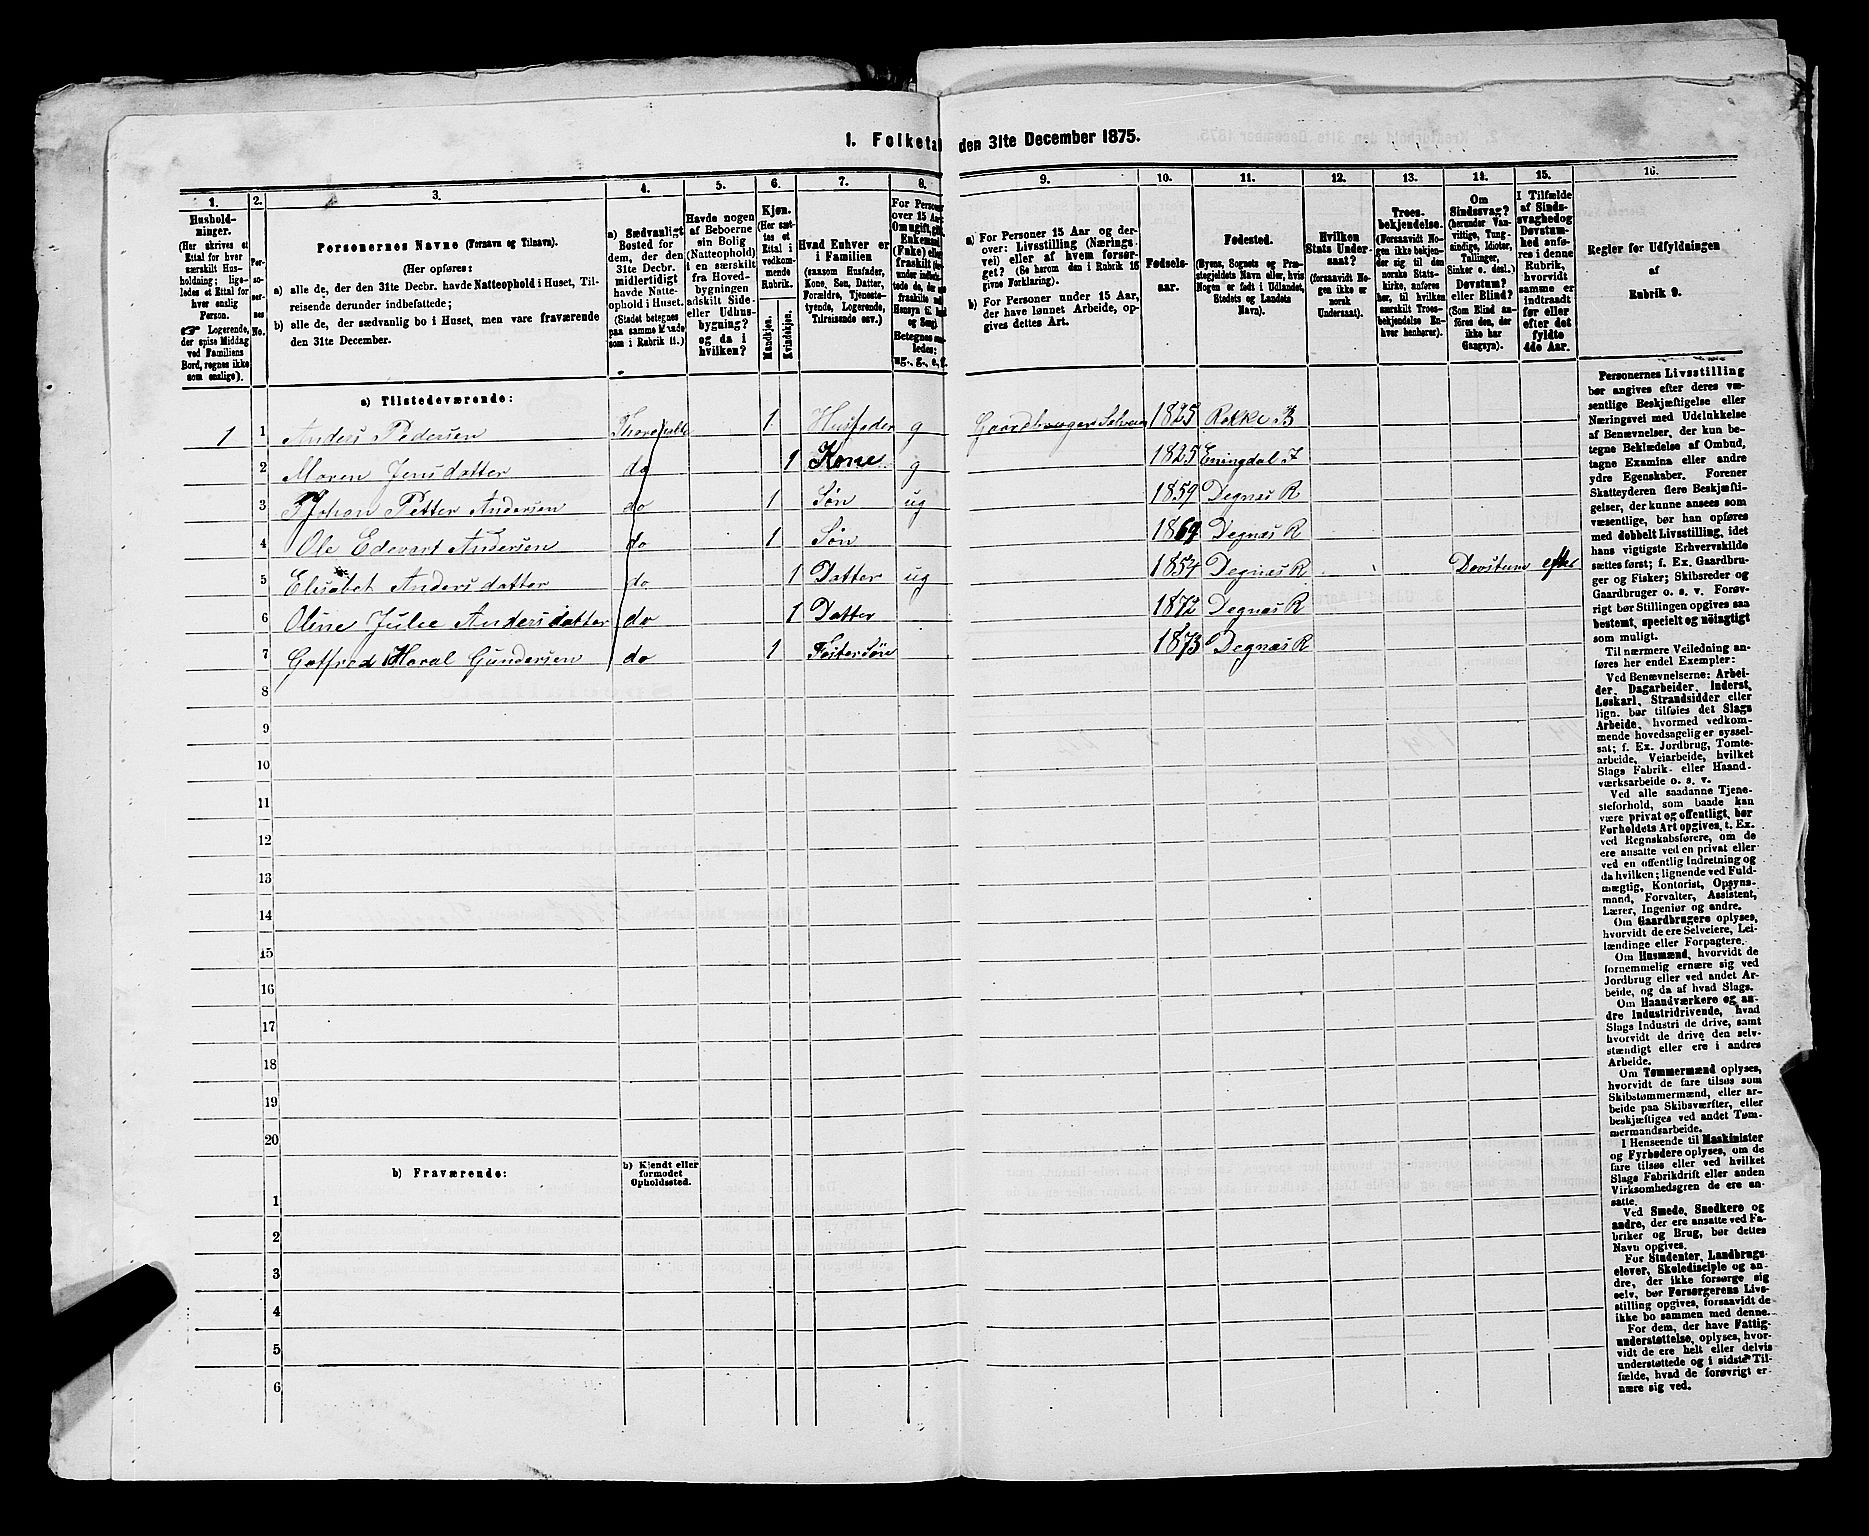 1. Folketa den 31te December 1875.
1. 2. 3. 4. 5. 6. 7. 8. 9. 10. 11. 12. 13. 14. 15. 16.
Hushold-
ninger.
(Her skrives et
Ettal for hver
særskilt Hus-
holdning; lige-
ledes et Ettal for
hver enslig
Person.
☞ Logerende,
der spise Middag
ved Familiens
Bord, regnes ikke
som enslige).
Personernes No.
Personernes Navne (Fornavn og Tilnavn).
(Her opføres:
a) alle de, der den 31te Decbr. havde Natteophold i Huset, Til-
reisende derunder indbefattede;
b) alle de, der sædvanlig bo i Huset, men vare fraværende
den 31te December.
a) Sædvanligt
Bosted for
dem, der den
31te Decbr.
midlertidigt
havde Natte-
ophold i Huset.
(Stedet betegnes
paa samme Maade
som i Rubrik 11.)
Havde nogen
af Beboerne
sin Bolig
(Natteophold)
i en særskilt
fra Hoved-
bygningen
adskilt Side-
eller Udhus-
bygning?
og da i
hvilken?
Kjøn.
(Her sæt-
tes et
Ettal i
vedkom-
mende
Rubrik.
Mandkjøn.
Kvindekjøn.
Hvad Enhver er
i Familien
(saasom Husfader,
Kone, Søn, Datter,
Forældre, Tjeneste-
tyende, Logerende,
Tilreisende osv.)
For Persone
over 15 Aar
Om ugift, gift,
Enkemand
(Enke) eller
fraskilt
Betegnes saa-
ledes:
ug., g., e., f.
a) For Personer 15 Aar og der-
over: Livsstilling (Nærings-
vei) eller af hvem forsør-
get? (Se herom den i Rubrik 16
givne Forklaring).
b) For Personer under 15 Aar,
der have lønnet Arbeide, op-
gives dettes Art.
Fødsels-
aar.
Fødested.
(Byens, Sognets og Præ-
stegjeldets Navn eller, hvis
Nogen er født i Udlandet,
Stedets og Landets
Navn).
Hvilken
Stats Under-
saat?
(forsaavidt No-
gen ikke er
norsk
Undersaat).
Troes-
bekjendelse.
(Forsaavidt No-
gen ikke bekjen-
der sig til den
norske Stats-
kirke, anføres
her, til hvilken
særskilt Troes-
bekjendelse En-
hver henhører).
Om
Sindssvag?
(herunder Van-
vittige, Tung-
sindige, Idioter,
Tullinger,
Sinker o. desl.)
Døvstum?
eller Blind?
(Som Blind an-
føres den, der
ikke har
Gangsyn).
I Tilfælde
af Sinds-
svaghed og
Døvstum-
hed anfø-
res i denne
Rubrik,
hvorvidt
samme er
indtraadt
før eller
efter det
fyldte
4de Aar.
Regler for Udfyldningen
af
Rubrik 9.
a) Tilstedeværende:
1 1 Anders Pedersen 1 Husfader g Gaardbruger Selveier 1825 Rokke B
2 Maren Jensdatter do 1 Kone g 1825 Enningdal I
3 Johan Petter Andersen do 1 Søn ug 1859 Degnæs R
4 Ole Edevart Andersen do 1 Søn 1869 Degnæs R
5 Elisabet Andersdatter do 1 Datter ug 1854 Degnæs R Døvstum efter
6 Oline Julie Andersdatter do 1 Datter 1872 Degnæs R
7 Gotfred Haral Gundersen do 1 Fostersøn 1873 Degnæs R
8
9
10
11
12
13
14
15
16
17
18
19
20
b) Fraværende:
b) Kjendt eller
formodet
Opholdssted.
1
2
3
4
5
6
Personernes Livsstilling
bør angives efter deres væ-
sentlige Beskjæftigelse eller
Næringsvei med Udelukkelse
af Benævnelser, der kun be-
tegne Beklædelse af Ombud,
tagne Examina eller andre
ydre Egenskaber. Forener
Skatteyderen flere Beskjæfti-
gelser, der kunne ansees som
væsentlige, bør han opføres
med dobbelt Livsstilling, idet
hans vigtigste Erhvervskilde
sættes først; f. Ex. Gaardbru-
ger og Fisker; Skibsreder og
Gaardbruger o. s. v. Forøv-
rigt bør Stillingen opgives saa
bestemt, specielt og nøiagtigt
som muligt.
Til nærmere Veiledning an-
føres her endel Exempler:
Ved Benævnelserne: Arbei-
der, Dagarbeider, Inderst,
Løskarl, Strandsidder eller
lign. bør tilføies det Slags
Arbeide, hvormed vedkom-
mende hovedsagelig er syssel-
sat; f. Ex. Jordbrug, Tomte-
arbeide, Veiarbeide, hvilket
Slags Fabrik- eller Haand-
værksarbeide o. s. v.
Ved alle saadanne Tjene-
steforhold, som baade kan
være privat og offentligt, bør
Forholdets Art opgives, t. Ex.
ved Regnskabsførere, om de
ere ansatte ved en privat eller
ved en offentlig Indretning og
da hvilken; lignende ved Fuld-
mægtig, Kontorist, Opsyns-
mand, Forvalter, Assistent,
Lærer, Ingeniør og andre.
Om Gaardbrugere oplyses,
hvorvidt de ere Selveiere, Lei-
lændinge eller Forpagtere.
Om Husmænd, hvorvidt de
fornemmelig ernære sig ved
Jordbrug eller ved andet Ar-
beide, og da af hvad Slags.
Om Haandværkere og an-
dre Industridrivende, hvad
Slags Industri de drive, samt
hvorvidt de drive den selv-
stændigt eller ere i andres
Arbeide.
Om Tømmermænd oplyses,
hvorvidt de fare tilsøs som
Skibstømmermænd, eller ar-
beide paa Skibsværfter, eller
beskjæftiges ved andet Tøm-
mermandsarbeide.
I Henseende til Maskinister
og Fyrbødere oplyses, om de
fare tilsøs eller ved hvilket
Slags Fabrikdrift eller anden
Virksomhedsgren de ere an-
satte.
Ved Smede, Snedkere og
andre, der ere ansatte ved Fa-
briker og Brug, bør dettes
Navn opgives.
For Studenter, Landbrugs-
elever, Skoledisciple og an-
dre, der ikke forsørge sig
selv, bør Forsørgerens Livs-
stilling opgives, forsaavidt de
ikke bo sammen med denne.
For dem, der have Fattig-
understøttelse, oplyses, hvor-
vidt de ere helt eller delvis
understøttede og i sidste Til-
fælde, hvad de forøvrigt er-
nære sig ved.